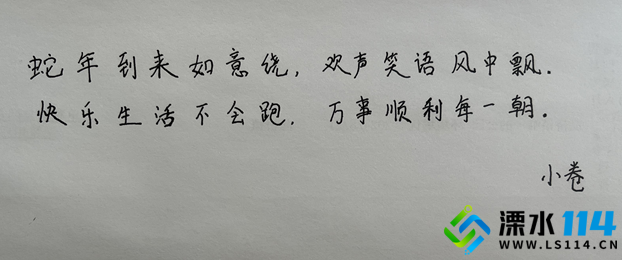 蛇年到来如意绕，欢声笑语风中飘.
快乐生活不会跑，万事顺利每一朝.
小卷
溧水114
WWW.LS114.CN